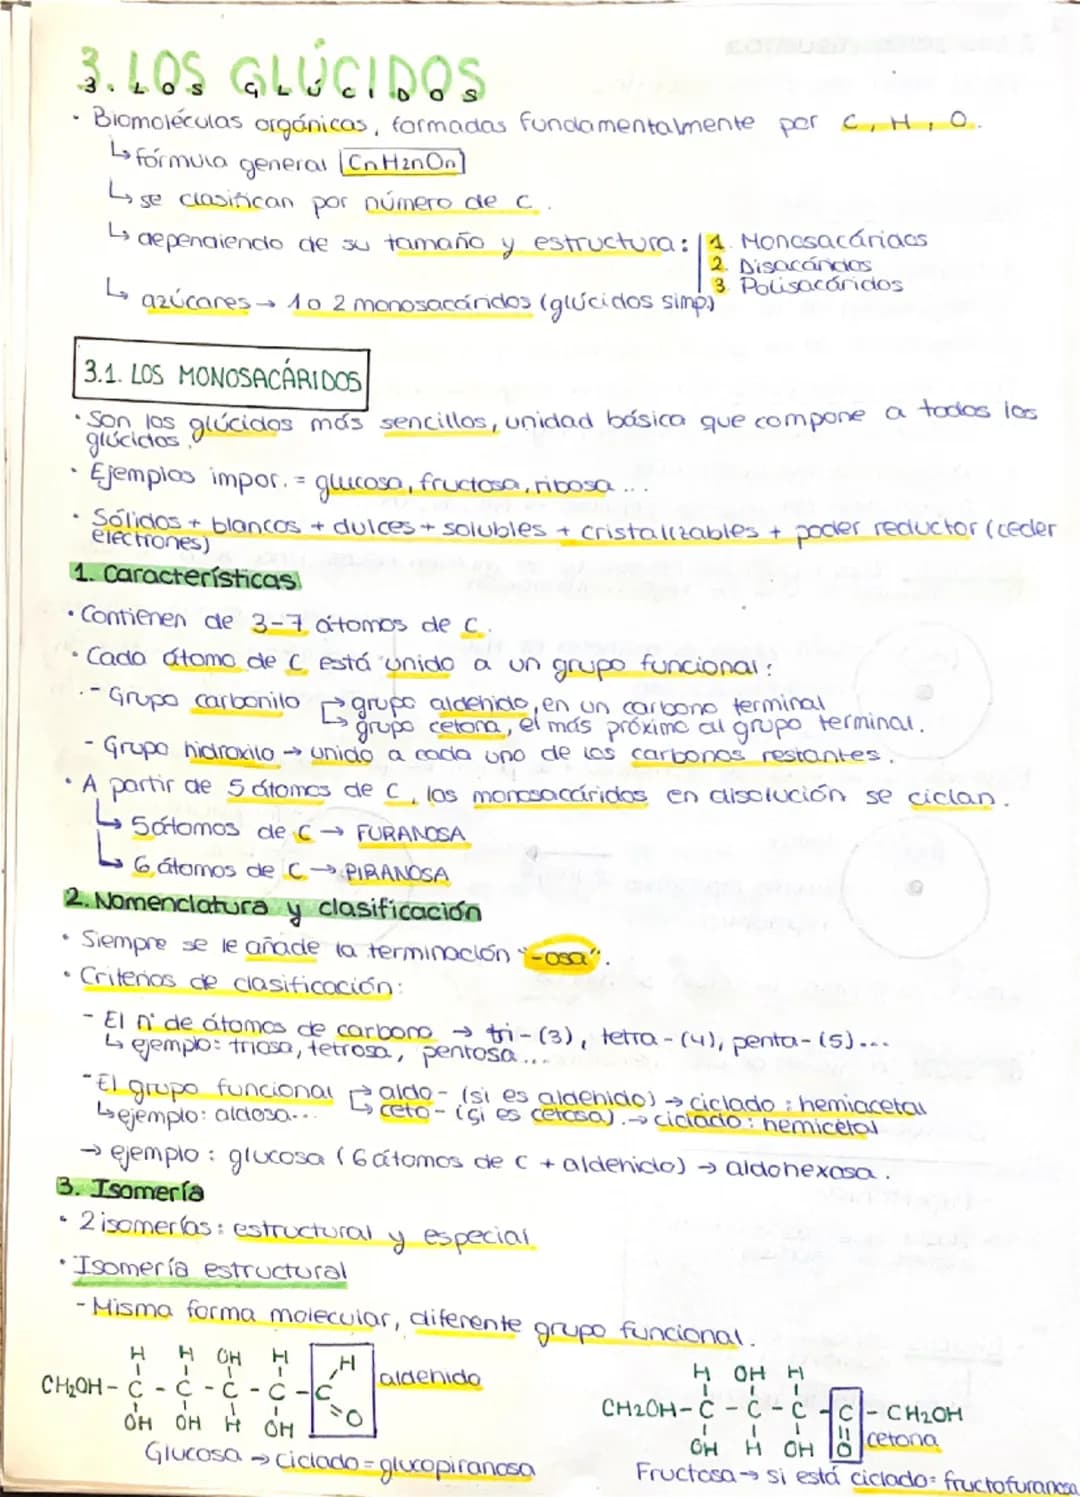 3. LOS GLÚCIDOS
· Biomoléculas orgánicas, formadas fundamentalmente por C, H, O.
↳ fórmula general CnH2nOn
↳ se clasifican por número de C.
↳ dependiendo de su tamaño y estructura: 1. Monosacáridos
2. Disacáridos
3. Polisacáridos
↳ azúcares → 1 o 2 monosacáridos (glúcidos simp.)
3.1. LOS MONOSACÁRIDOS
· Son los glúcidos más sencillos, unidad básica que compone a todos los
glúcidos.
· Ejemplos impor. = glucosa, fructosa, ribosa ...
· Sólidos + blancos + dulces + solubles + cristalizables + poder reductor (ceder
electrones)
1. Características
· Contienen de 3-7 átomos de C.
· Cada átomo de C está unido a un grupo funcional:
- Grupo carbonilo → grupo aldehido, en un carbono terminal
↳ grupo cetona, el más próximo al grupo terminal.
- Grupo hidroxilo → unido a cada uno de los carbonos restantes.
· A partir de 5 átomos de C, los monosacáridos en disolución se ciclan.
↳ 5 átomos de C → FURANOSA
↳ 6 átomos de C → PIRANOSA
2. Nomenclatura y clasificación
· Siempre se le añade la terminación "-osa".
· Criterios de clasificación:
- El nº de átomos de carbono → tri-(3), tetra-(4), penta-(5)...
↳ ejemplo: triosa, tetrosa, pentosa...
- El grupo funcional → aldo- (si es aldehido) → ciclado: hemiacetal
↳ ceto- (si es cetosa). → ciclado: hemicetal
↳ ejemplo: aldosa...
→ ejemplo: glucosa (6 átomos de C + aldehido) → aldohexosa.
3. Isomería
· 2 isomerías: estructural y especial
· Isomería estructural
- Misma forma molecular, diferente grupo funcional.
H H OH H H
CH2OH - C - C - C - C - C aldehido
OH OH H OH O
Glucosa → ciclado = glucopiranosa
H OH H
CH2OH - C - C - C - C - CH2OH
OH H OH O cetona
Fructosa → si está ciclado = fructofuranosa